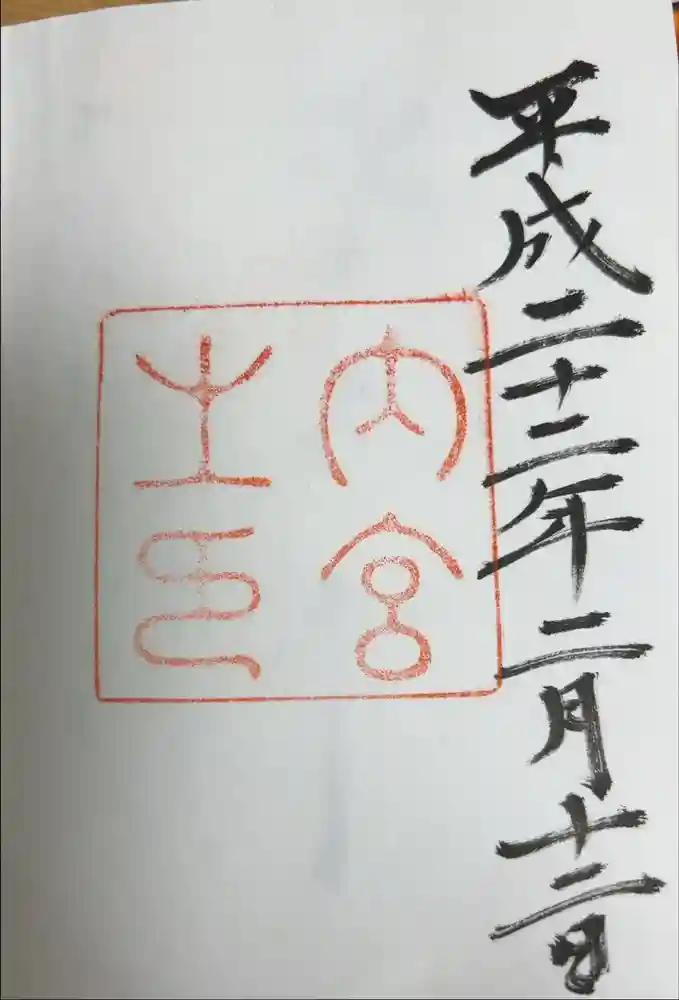 平成二十二年二月十二日
内宮
之印